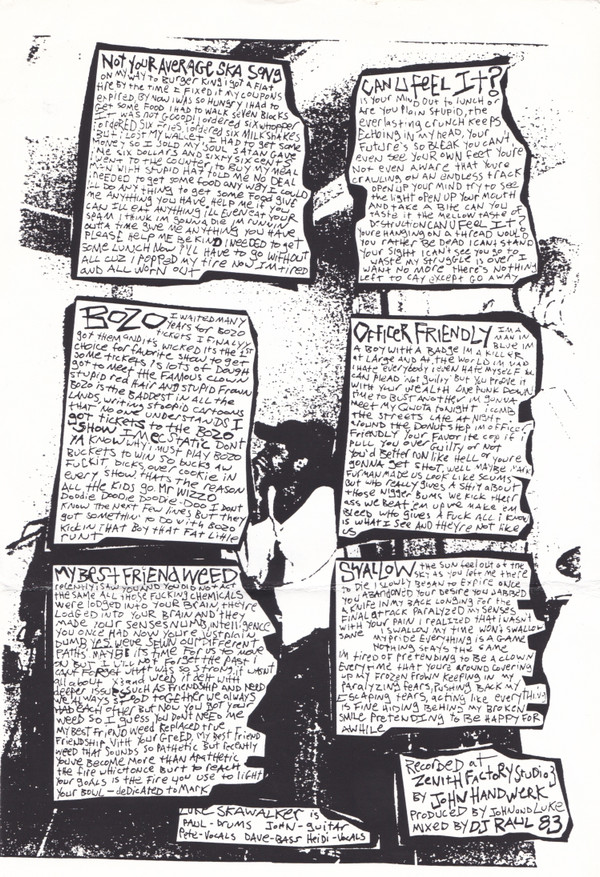 NOT YOUR AVERAGE SKA SONG
ON MY WAY TO BURGER KING I GOT A FLAT
TIRE BY THE TIME I FIXED IT MY COUPONS
EXPIRED, BY NOW I WAS SO HUNGRY I HAD TO
GET SOME FOOD I HAD TO WALK SEVEN BLOCKS
IT WAS NOT GOOD! I ORDERED SIX WHOPPER
I ORDERED SIX FRIES, I ORDERED SIX MILK SHAKES
BUT I LOST MY WALLET I HAD TO GET SOME
MONEY SO I SOLD MY SOUL SATAN GAVE
ME SIX DOLLARS AND SIXTY SIX CENTS I
WENT TO THE COUNTER TO BUY MY MEAL
MAN WITH STUPID HAT TOLD ME NO DEAL
NEEDED TO GET SOME FOOD ANY WAY I COULD
I'LL DO ANYTHING TO GET SOME FOOD GIVE
ME ANYTHING YOU HAVE, HELP ME IF YOU
I'LL EAT ANYTHING I'LL EVEN EAT YOUR
SPAM I THINK IM GONNA DIE IM RUNNING
OUTTA TIME GIVE ME ANYTHING YOU HAVE
PLEASE HELP ME BE KIND I NEEDED TO GET
SOME LUNCH NOW I'LL HAVE TO GO WITHOUT
ALL CUZ I POPPED MY TIRE NOW IM TIRED
AND ALL WORN OUT
CAN U FEEL IT?
IS YOUR MIND OUT TO LUNCH OR
ARE YOU PLAIN STUPID, THE
EVERLASTING CRUNCH KEEPS
ECHOING IN MY HEAD, YOUR
FUTURE'S SO BLEAK YOU CANT
EVEN SEE YOUR OWN FEET YOU'RE
NOT EVEN AWARE THAT YOU'RE
CRAWLING ON AN ENDLESS TRACK
OPEN UP YOUR MIND TRY TO SEE
THE LIGHT OPEN UP YOUR MOUTH
AND TAKE A BITE CAN YOU
TASTE IT THE MELLOW TASTE OF
DESTRUCTION CAN U FEEL IT?
YOU'RE HANGING ON A THREAD WOULD
YOU RATHER BE DEAD I CAN'T STAND
YOUR SIGHT I CANT SEE YOU GO TO
WASTE MY STRUGGLE IS OVER I
WANT NO MORE THERE'S NOTHING
LEFT TO SAY EXCEPT GO AWAY
BOZO I WAITED MANY
YEARS FOR BOZO
TICKETS I FINALYY
GOT THEM AND ITS WICKED ITS THE 1ST
CHOICE FOR FAVORITE SHOW TO GET
SOME TICKETS IS LOTS OF DOUGH
GOT TO MEET THE FAMOUS CLOWN
STUPID RED HAIR AND STUPID FROWN
BOZO IS THE BADDEST IN ALL THE
LANDS, WRITING STOOPID CARTOONS
THAT NO ONE UNDERSTANDS I
GOT TICKETS TO THE BOZO
SHOW IM ECSTATIC DON'T
YA KNOW, WAY! MUST PLAY BOZO
BUCKETS TO WIN 50 BUCKS AW
FUCKIT, DICKS OVER COOKIE IN
EVERY SHOW, THATS THE REASON
ALL THE KIDS GO MR WIZZO
DOODIE DOODIE DOODIE-DOO I DONT
KNOW THE NEXT FEW LINES, BUT THEY
GOT SOMETHIN TO DO WITH BOZO
KICKIN THAT BOY THAT FAT LITTLE
RUNT
OFFICER FRIENDLY IM A
MAN IN
BLUE IM
A BOY WITH A BADGE IM A KILLER
AT LARGE AND AT THE WORLD IM MAD
I HATE EVERYBODY I EVEN HATE MYSELF
CAN PLEAD NOT GUILTY BUT YOU PROVE IT
WITH YOUR WEALTH ONE PUNK DOWN
TIME TO BUST ANOTHER IM GUNNA
MEET MY QUOTA TONIGHT I COMB
THE STREETS LATE AT NIGHT
AROUND THE DONUT SHOP IM OFFICER
FRIENDLY YOUR FAVORITE COP IF I
PULL YOU OVER GUILTY OR NOT
YOU'D BETTER RUN LIKE HELL OR YOU'RE
GONNA GET SHOT, WELL MAYBE MARK
FURMAN MADE US LOOK LIKE SCUMS
BUT WHO REALLY GIVES A SHIT ABOUT
THOSE NIGGER BUMS WE KICK THEIR
ASS WE BEAT EM UP WE MAKE EM
BLEED WHO GIVES A FUCK ALL I KNOW
IS WHAT I SEE AND THEY'RE NOT LIKE
US
MY BEST FRIEND WEED
IS YOU AND YOU DO NOT ACT
THE SAME ALL THOSE FUCKING CHEMICALS
WERE LODGED INTO YOUR BRAIN, THEY'RE
LODGED INTO YOUR BRAIN AND THEY
MADE YOUR SENSES NUMB, INTELLIGENCE
YOU ONCE HAD NOW YOU'RE JUST PLAIN
DUMP YES WE'VE SPUN OUR DIFFERENT
PATHS MAYBE ITS TIME FOR US TO MOVE
ON BUT I WILL NOT FORGET THE PAST I
CANT FORGET WHAT WAS SO STRONG IT WASN'T
ALL ABOUT WEED IT DELT WITH
DEEPER ISSUES SUCH AS FRIENDSHIP AND NEED
WE ALWAYS STOOD TOGETHER WE ALWAYS
HAD EACH OTHER BUT NOW YOU GOT YOUR
WEED SO I GUESS YOU DONT NEED ME
MY BEST FRIEND WEED REPLACED TRUE
FRIENDSHIP WITH YOUR GREED, MY BEST FRIEND
WEED THAT SOUNDS SO PATHETIC BUT RECENTLY
YOU'VE BECOME MORE THAN APATHETIC
THE FIRE WHICH ONCE BURT TO REACH
YOUR GOALS IS THE FIRE YOU USE TO LIGHT
YOUR BOWL - DEDICATED TO MARK
SWALLOW THE SUN FELL OUT OF THE
SKY AS YOU LEFT ME THERE
TO DIE I SLOWLY BEGAN TO EXPIRE ONCE
YOU ABANDONED YOUR DESIRE YOU JABBED
A KNIFE IN MY BACK LOOKING FOR THE
FINAL ATTACK PARALYZED MY SENSES
WITH YOUR PAIN I REALIZED THAT I WASN'T
SANE I SWALLOW MY TIME WON'T SWALLOW
MY PRIDE EVERYTHING IS A GAME
NOTHING STAYS THE SAME
IM TIRED OF PRETENDING TO BE A CLOWN
EVERYTIME THAT YOU'RE AROUND COVERING
UP MY FROZEN FROWN KEEPING IN MY
PARALYZING FEARS, PUSHING BACK MY
ESCAPING TEARS, ACTING LIKE EVERYTHING
IS FINE HIDING BEHIND MY BROKEN
SMILE PRETENDING TO BE HAPPY FOR
AWHILE
LUKE SKAWALKER IS
PAUL-DRUMS JOHN-GUITAR
PETE-VOCALS DAVE-BASS HEIDI-VOCALS
RECORDED AT
ZENITH FACTORY STUDIOZ
BY JOHN HANDWERK
PRODUCED BY JOHN AND LUKE
MIXED BY DJ RAUL 83